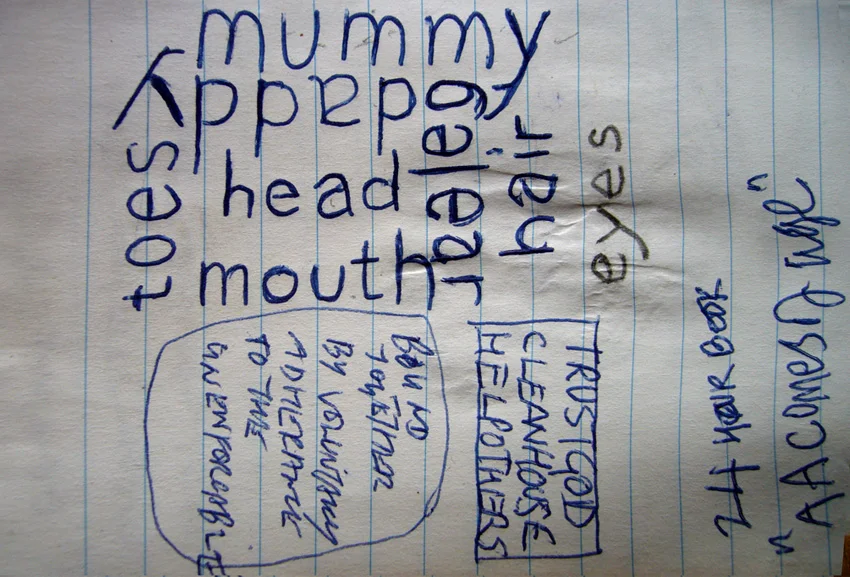 mummy
daddy
head
mouth
toes
leg
ear
hair
eyes
TRUST GOD
CLEAN HOUSE
HELP OTHERS
BOUND
TOGETHER
BY VOLUNTARY
ADHERANCE
TO THE
UNENFORCEABLE
24 HOUR BOOK
"AA COMES OF AGE"